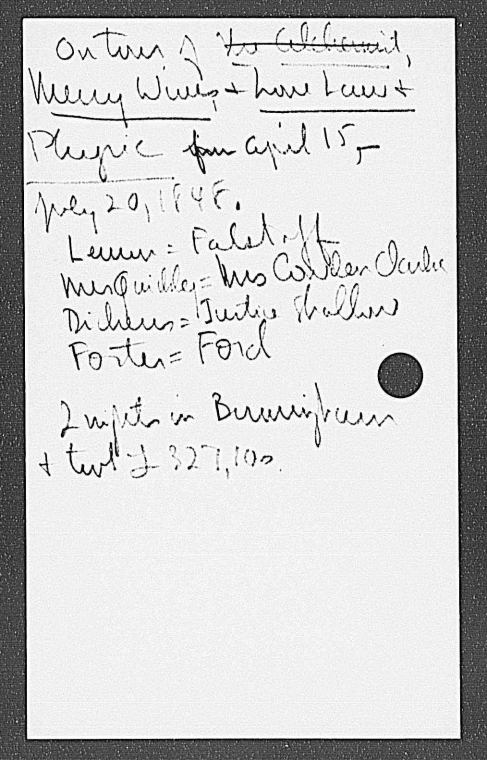 On tour of The Alchemist,
Merry Wives, + Love Law +
Physic from April 15, -
July 20, 1848.
Lemon = Falstaff
Mrs Quickly = Mrs Cowden Clarke
Dickens = Justice Shallow
Forster = Ford
2 nights in Birmingham
+ took £327, 10s.